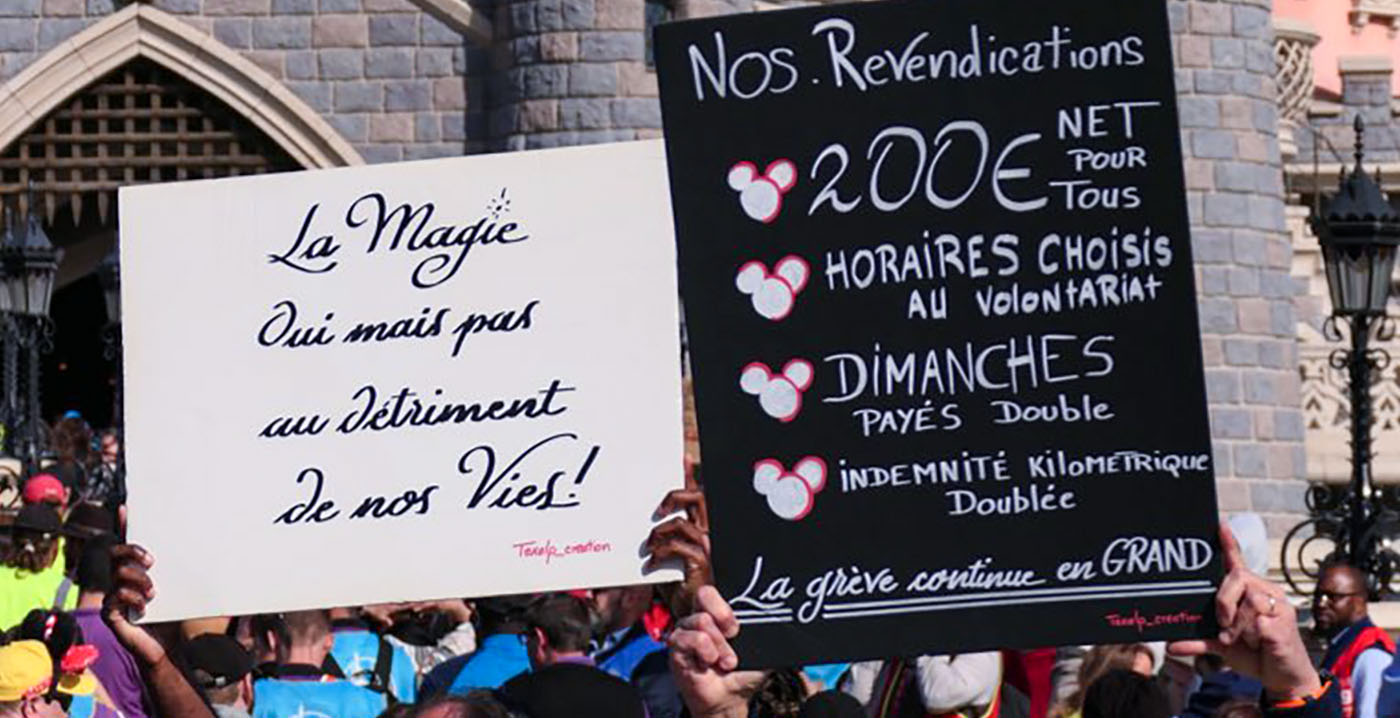 La Magie
Oui mais pas
au détriment
de nos Vies!
Nos. Revendications
200€ NET
POUR
TOUS
HORAIRES CHOISIS
AU VOLONTARIAT
DIMANCHES
PAYÉS Double
INDEMNITÉ KILOMETRIQUE
Doublée
La grève continue en GRAND